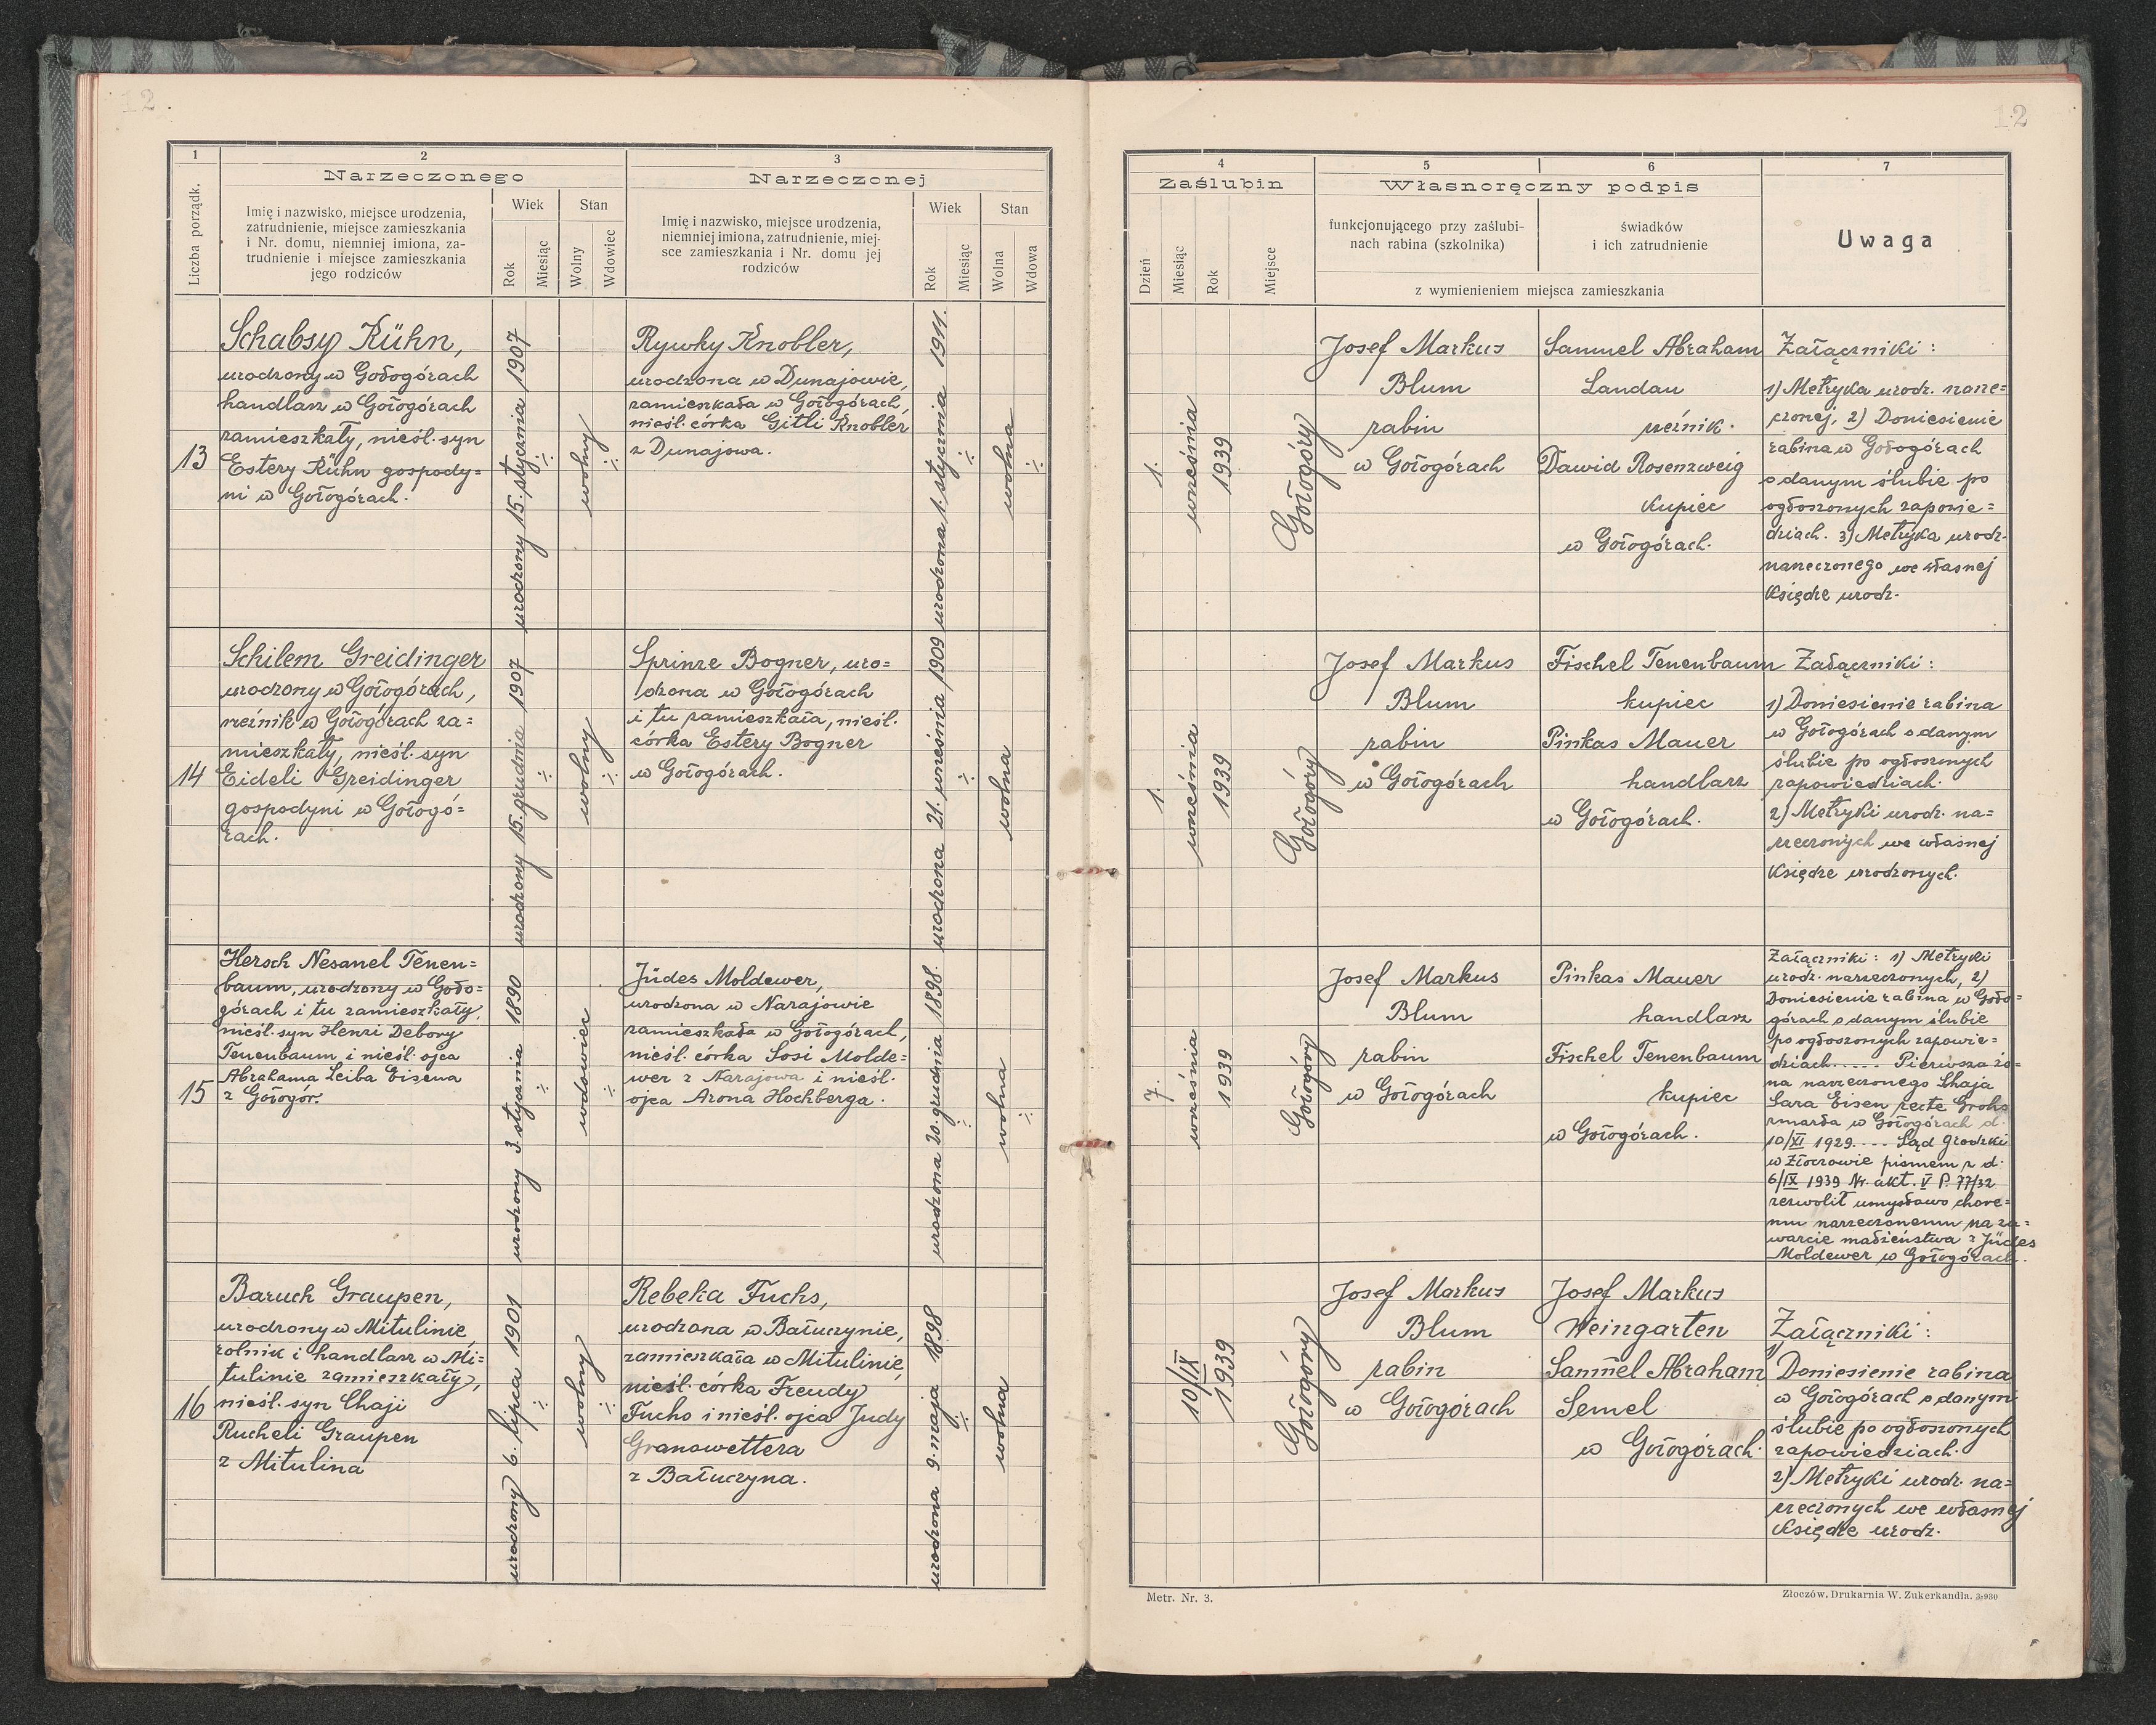 12.
1
2
3
Narzeczonego
Narzeczonej
Liczba porządk.
Imię i nazwisko, miejsce urodzenia,
zatrudnienie, miejsce zamieszkania
i Nr. domu, niemniej imiona, za-
trudnienie i miejsce zamieszkania
jego rodziców
Wiek
Stan
Rok
Miesiąc
Wolny
Wdowiec
Imię i nazwisko, miejsce urodzenia,
niemniej imiona, zatrudnienie, miej-
sce zamieszkania i Nr. domu jej
rodziców
Wiek
Stan
Rok
Miesiąc
Wolna
Wdowa
13
Schabsy Kühn,
urodzony w Gołogórach
handlarz w Gołogórach
zamieszkały, nieśl. syn
Estery Kühn gospody=
ni w Gołogórach.
urodzony 15. stycznia 1907
wolny
Rywky Knobler,
urodzona w Dunajowie,
zamieszkała w Gołogórach,
nieśl. córka Gitli Knobler
z Dunajowa.
urodzona 1. stycznia 1911.
wolna
14
Schilem Greidinger
urodzony w Gołogórach,
rzeźnik w Gołogórach za=
mieszkały, nieśl. syn
Eideli Greidinger
gospodyni w Gołogó=
rach.
urodzony 15. grudnia 1907
wolny
Sprinze Bogner, uro=
dzona w Gołogórach
i tu zamieszkała, nieśl.
córka Estery Bogner
w Gołogórach.
urodzona 21. września 1909
wolna
15
Hersch Nesanel Tenen=
baum, urodzony w Goło=
górach i tu zamieszkały,
nieśl. syn Henri Debory
Tenenbaum i nieśl. ojca
Abrahama Leiba Eisena
z Gołogór.
urodzony 3. stycznia 1890
wdowiec
Jüdes Moldewer,
urodzona w Narajowie
zamieszkała w Gołogórach,
nieśl. córka Sosi Molde=
wer z Narajowa i nieśl.
ojca Arona Hochberga.
urodzona 20. grudnia 1898.
wolna
16
Baruch Graupen,
urodzony w Mitulinie,
rolnik i handlarz w Mi=
tulinie zamieszkały,
nieśl. syn Chaji
Rucheli Graupen
z Mitulina
urodzony 6. lipca 1901
wolny
Rebeka Fuchs,
urodzona w Bałuczynie,
zamieszkała w Mitulinie,
nieśl. córka Freudy
Fuchs i nieśl. ojca Judy
Granowettera
z Bałuczyna.
urodzona 9. maja 1898
wolna
12
4
5
6
7
Zaślubin
Własnoręczny podpis
Uwaga
Dzień
Miesiąc
Rok
Miejsce
funkcjonującego przy zaślubi-
nach rabina (szkolnika)
świadków
i ich zatrudnienie
z wymienieniem miejsca zamieszkania
1.
września
1939
Gołogóry
Josef Markus
Blum
rabin
w Gołogórach
Samuel Abraham
Landau
rzeźnik.
Dawid Rosenzweig
kupiec
w Gołogórach.
Załączniki:
1) Metryka urodz. narze=
czonej, 2) Doniesienie
rabina w Gołogórach
o danym ślubie po
ogłoszonych zapowie=
dziach. 3) Metryka urodz.
narzeczonego we własnej
Księdze urodz.
1.
września
1939
Gołogóry
Josef Markus
Blum
rabin
w Gołogórach
Fischel Tenenbaum
kupiec
Pinkas Mauer
handlarz
w Gołogórach.
Załączniki:
1) Doniesienie rabina
w Gołogórach o danym
ślubie po ogłoszonych
zapowiedziach.
2) Metryki urodz. na=
rzeczonych we własnej
Księdze urodzonych.
7.
września
1939
Gołogóry
Josef Markus
Blum
rabin
w Gołogórach
Pinkas Mauer
handlarz
Fischel Tenenbaum
kupiec
w Gołogórach.
Załączniki: 1) Metryki
urodz. narzeczonych, 2)
Doniesienie rabina w Goło=
górach o danym ślubie
po ogłoszonych zapowie=
dziach..... Pierwsza żo=
na narzeczonego Chaja
Sara Eisen recte Grohs
zmarła w Gołogórach d.
10/XI 1929.... Sąd Grodzki
w Złoczowie pismem z d.
6/IX 1939 Nr akt. V P. 77/32
zezwolił umysłowo chore=
mu narzeczonemu na za=
warcie małżeństwa z Jüdes
Moldewer w Gołogórach.
10/IX
1939
Gołogóry
Josef Markus
Blum
rabin
w Gołogórach
Josef Markus
Weingarten
Samuel Abraham
Semel
w Gołogórach.
Załączniki:
1) Doniesienie rabina
w Gołogórach o danym
ślubie po ogłoszonych
zapowiedziach.
2) Metryki urodz. na=
rzeczonych we własnej
Księdze urodz.
Metr. Nr. 3.
Złoczów. Drukarnia W. Zukerkandla. 3-930